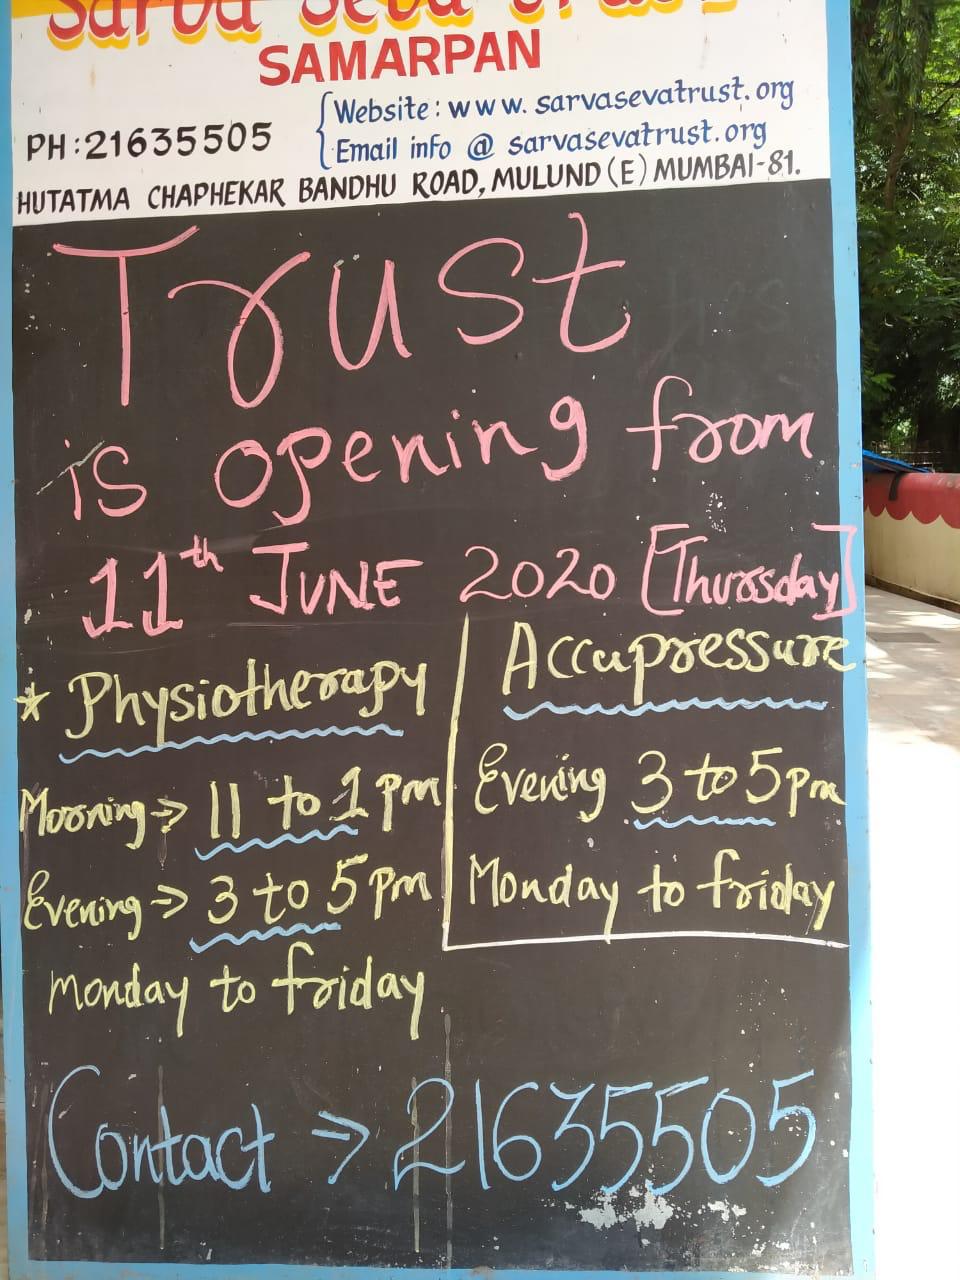 Sarva Seva Trust
SAMARPAN
PH:21635505
Website: www.sarvasevatrust.org
Email info @ sarvasevatrust.org
HUTATMA CHAPHEKAR BANDHU ROAD, MULUND (E) MUMBAI-81.
Trust
is opening from
11th JUNE 2020 [Thursday]
* Physiotherapy
Morning → 11 to 1 pm
Evening → 3 to 5 pm
monday to friday
Accupressure
Evening 3 to 5 pm
Monday to friday
Contact → 21635505